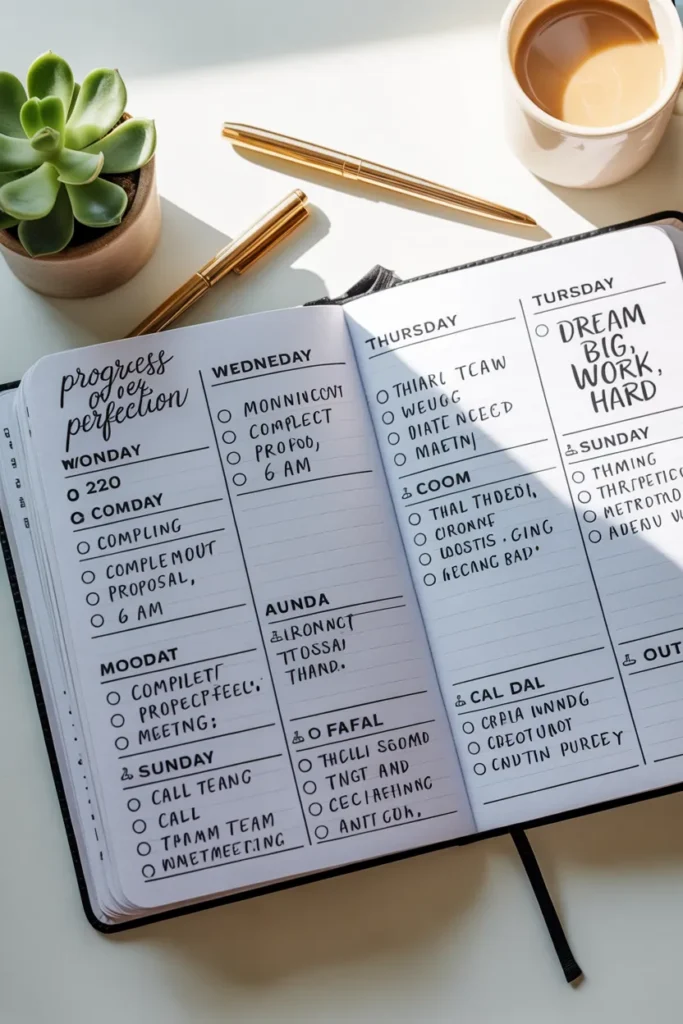 progress
over
perfection
WONDAY
220
COMDAY
COMPLING
COMPLEMOUT
PROPOSAL,
6 AM
MOODAT
COMPILETT
PROPECPFEEL'.
MEETNG:
SUNDAY
CALL TEANG
CALL
TPAMM TEAM
WNETMEETING
WEDNEDAY
MONNINCONT
COMPLECT
PROPOD,
6 AM
AUNDA
IRONNCT
TTOSSAI
THAND.
O FAFAL
THCLLI SGOMD
TNGT AND
CECIAEHNNG
ANTT COR,
THURSDAY
THIARL TCAW
WEUGG
DIATE NCECD
MAETN
COOM
THAL THDEDI,
CIRONNF
WOSTIS . GING
GECANG BAD'.
CAL DAL
CRPLA IWNDG
CREOTUNOT
CNUTIN PURCEY
TURSDAY
DREAM
BIG,
WORK,
HARD
SUNDAY
THMING
THRTPETICO
METROTMD
ADEAU W
OUT